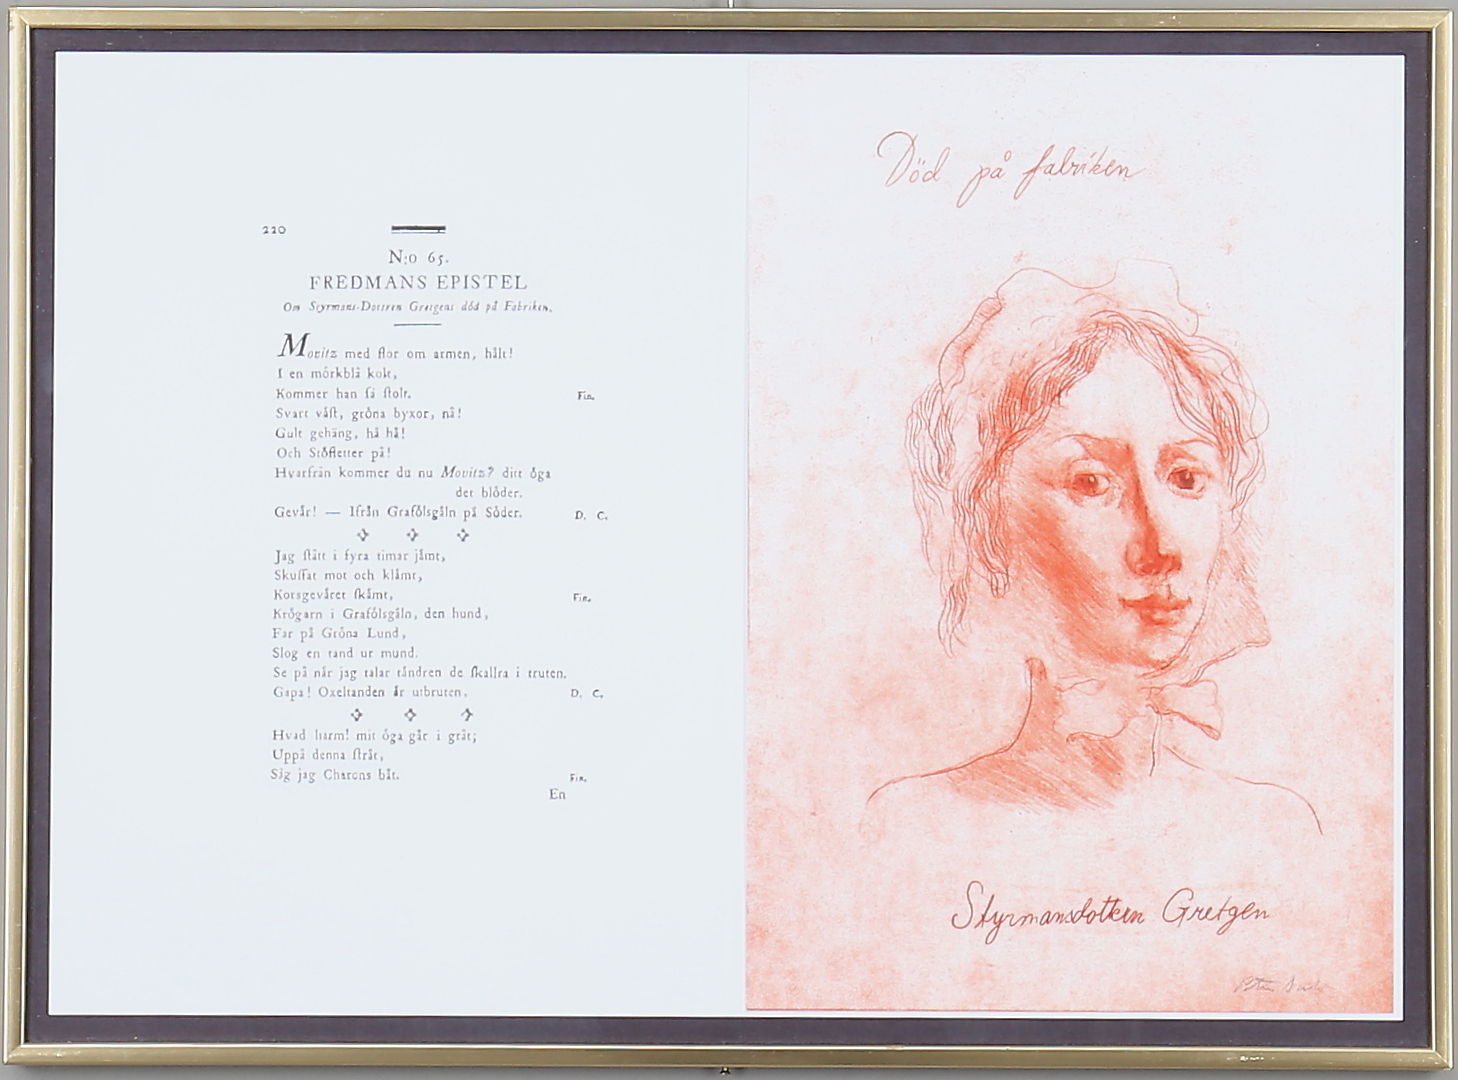 220
N:o 65.
FREDMANS EPISTEL
Om Styrmans-Dottren Gretgens död på Fabriken.
Movitz med flor om armen, hålt!
I en mörkblå kolt,
Kommer han så stolt. Fin.
Svart väst, gröna byxor, nå!
Gult gehäng, hå hå!
Och Stöfletter på!
Hvarfrån kommer du nu Movitz? ditt öga
det blöder.
Gevär! — Ifrån Grafölsgåln på Söder. D. C.
Jag stått i fyra timar jämt,
Skuffat mot och klämt,
Korsgeväret skämt, Fin.
Krögarn i Grafölsgåln, den hund,
Far på Gröna Lund,
Slog en tand ur mund.
Se på når jag talar tändren de skallra i truten.
Gapa! Oxeltanden är utbruten. D. C.
Hvad harm! mit öga går i gråt;
Uppå denna stråt,
Såg jag Charons båt. Fin.
En
Död på fabriken
Styrmansdottern Gretgen